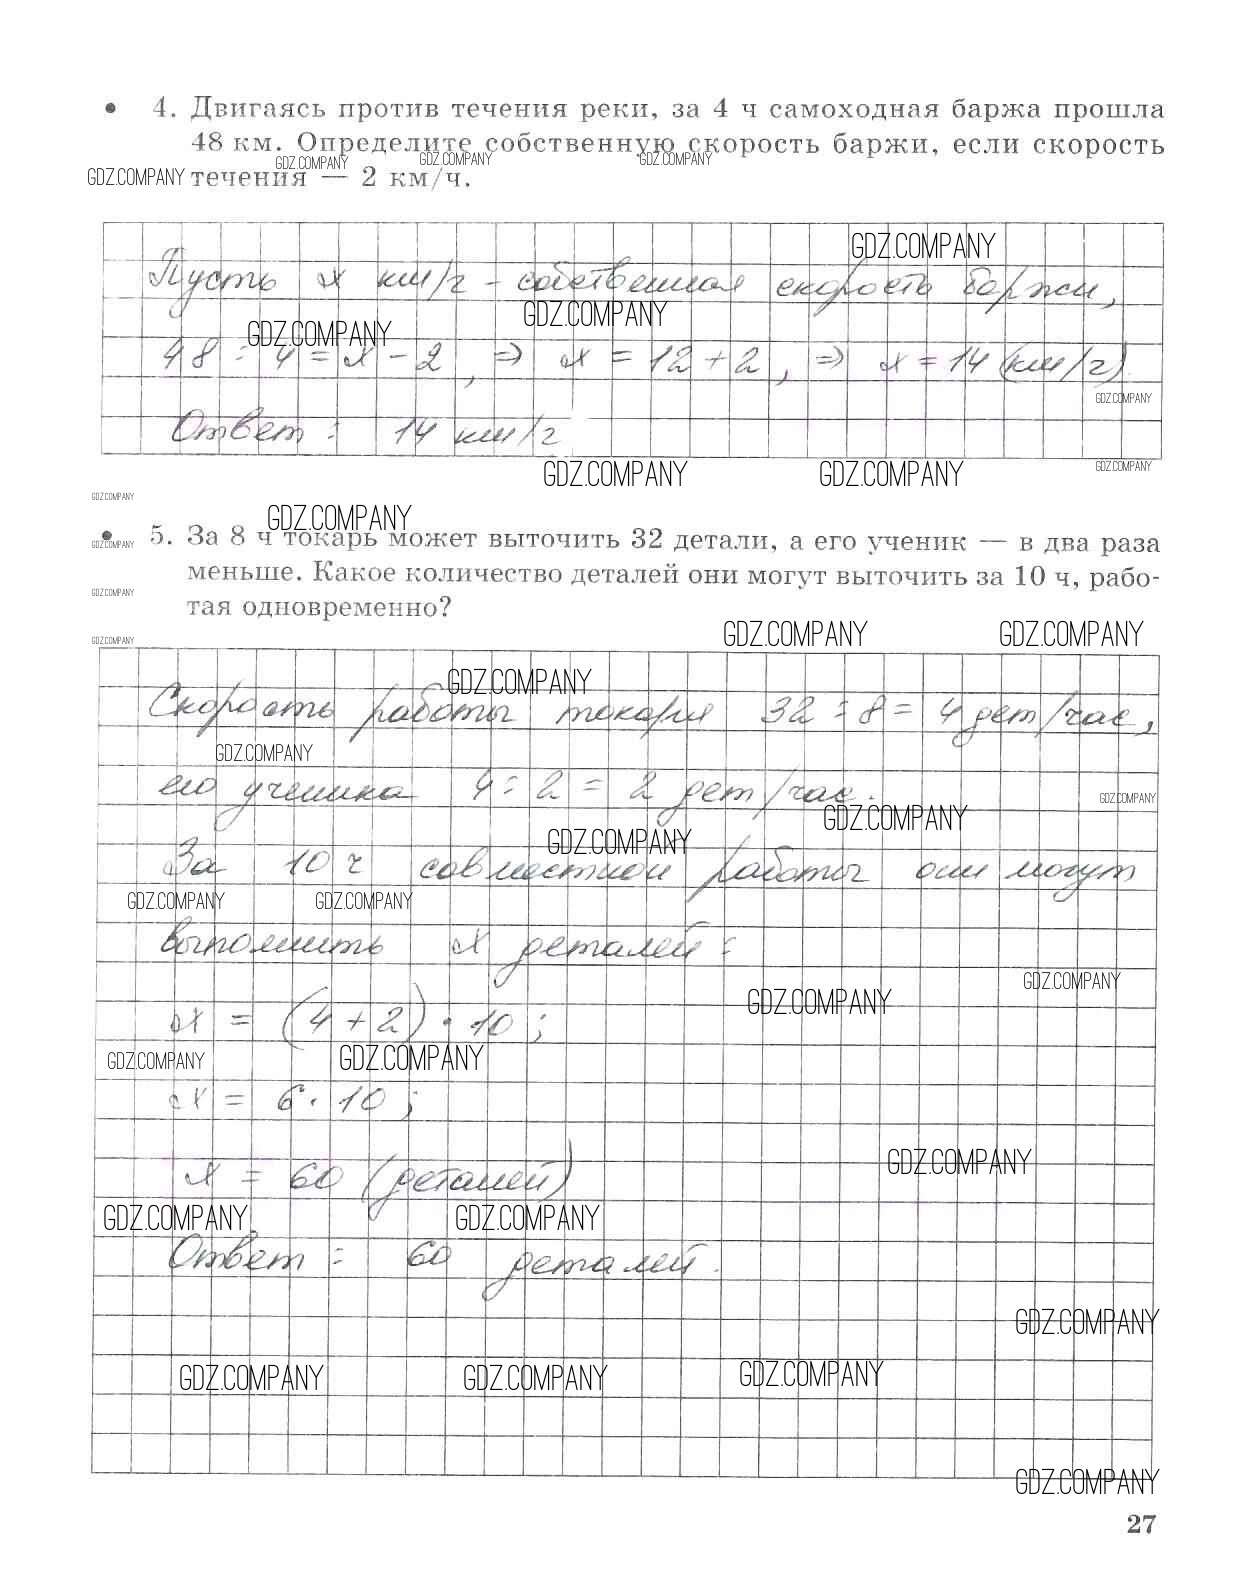 • 4. Двигаясь против течения реки, за 4 ч самоходная баржа прошла
48 км. Определите собственную скорость баржи, если скорость
GDZ.COMPANY GDZ.COMPANY GDZ.COMPANY
GDZ.COMPANY течения — 2 км/ч.
GDZ.COMPANY
Пусть x км/ч - собственная скорость баржи,
GDZ.COMPANY GDZ.COMPANY
48 : 4 = x - 2, ⇒ x = 12 + 2, ⇒ x = 14 (км/ч)
GDZ.COMPANY
Ответ : 14 км/ч
GDZ.COMPANY GDZ.COMPANY GDZ.COMPANY
GDZ.COMPANY
GDZ.COMPANY
• 5. За 8 ч токарь может выточить 32 детали, а его ученик — в два раза
GDZ.COMPANY
меньше. Какое количество деталей они могут выточить за 10 ч, рабо-
GDZ.COMPANY
тая одновременно?
GDZ.COMPANY GDZ.COMPANY GDZ.COMPANY
GDZ.COMPANY
Скорость работы токаря 32 : 8 = 4 дет/час,
GDZ.COMPANY
его ученика 4 : 2 = 2 дет/час.
GDZ.COMPANY
GDZ.COMPANY GDZ.COMPANY
За 10 ч совместной работы они могут
GDZ.COMPANY GDZ.COMPANY
выполнить x деталей:
GDZ.COMPANY GDZ.COMPANY
x = (4 + 2) · 10 ;
GDZ.COMPANY GDZ.COMPANY
x = 6 · 10 ;
GDZ.COMPANY
x = 60 (деталей)
GDZ.COMPANY GDZ.COMPANY
Ответ : 60 деталей.
GDZ.COMPANY
GDZ.COMPANY GDZ.COMPANY GDZ.COMPANY
GDZ.COMPANY
27